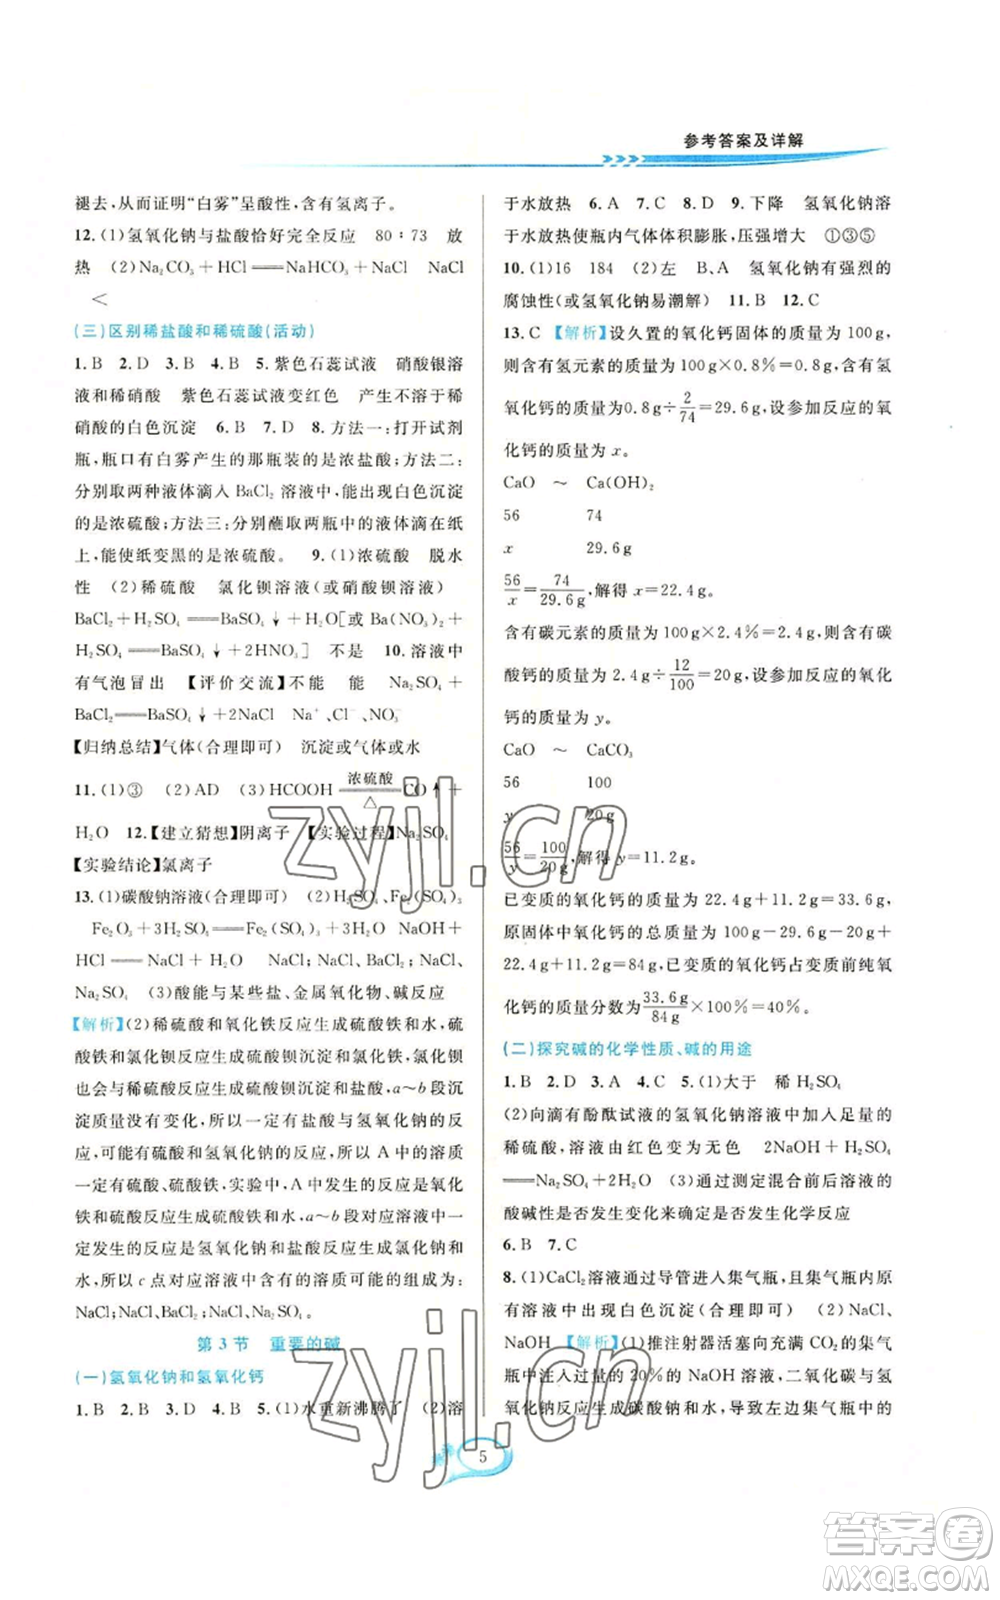 参考答案及详解
褪去,从而证明“白雾”呈酸性,含有氢离子。
12. (1)氢氧化钠与盐酸恰好完全反应 80∶73 放
热 (2)Na₂CO₃+HCl══NaHCO₃+NaCl NaCl
<
(三)区别稀盐酸和稀硫酸(活动)
1. B 2. D 3. B 4. B 5. 紫色石蕊试液 硝酸银溶
液和稀硝酸 紫色石蕊试液变红色 产生不溶于稀
硝酸的白色沉淀 6. B 7. D 8. 方法一:打开试剂
瓶,瓶口有白雾产生的那瓶装的是浓盐酸;方法二:
分别取两种液体滴入 BaCl₂ 溶液中,能出现白色沉淀
的是浓硫酸;方法三:分别蘸取两瓶中的液体滴在纸
上,能使纸变黑的是浓硫酸。 9. (1)浓硫酸 脱水
性 (2)稀硫酸 氯化钡溶液(或硝酸钡溶液)
BaCl₂+H₂SO₄══BaSO₄↓+2HCl[或 Ba(NO₃)₂+
H₂SO₄══BaSO₄↓+2HNO₃] 不是 10. 溶液中
有气泡冒出 【评价交流】不能 能 Na₂SO₄+
BaCl₂══BaSO₄↓+2NaCl Na⁺、Cl⁻、NO₃⁻
【归纳总结】气体(合理即可) 沉淀或气体或水
11. (1)③ (2)AD (3)HCOOH══浓硫酸△══CO↑+
H₂O 12.【建立猜想】阴离子 【实验过程】Na₂SO₄
【实验结论】氯离子
13. (1)碳酸钠溶液(合理即可) (2)H₂SO₄、Fe₂(SO₄)₃
Fe₂O₃+3H₂SO₄══Fe₂(SO₄)₃+3H₂O NaOH+
HCl══NaCl+H₂O NaCl;NaCl、BaCl₂;NaCl、
Na₂SO₄ (3)酸能与某些盐、金属氧化物、碱反应
【解析】(2)稀硫酸和氧化铁反应生成硫酸铁和水,硫
酸铁和氯化钡反应生成硫酸钡沉淀和氯化铁,氯化钡
也会与稀硫酸反应生成硫酸钡沉淀和盐酸,a~b 段沉
淀质量没有变化,所以一定有盐酸与氢氧化钠的反
应,所以一定有盐酸和氢氧化钠,所以 A 中的溶质
一定有硫酸、硫酸铁,实验中,A中发生的反应是氧化
铁和硫酸反应生成硫酸铁和水,a~b 段对应溶液中一
定发生的反应是氢氧化钠和盐酸反应生成氯化钠和水
,所以 c 点对应溶液中的溶质可能的组成为:
NaCl;NaCl、BaCl₂;NaCl、Na₂SO₄。
第 3 节 重要的碱
(一)氢氧化钠和氢氧化钙
1. B 2. B 3. D 4. B 5. (1)水重新沸腾了 (2)溶
于水放热 6. A 7. D 8. D 9. 下降 氢氧化钠溶
于水放热使瓶内气体体积膨胀,压强增大 ①③⑤
10. (1)16 184 (2)左 B、A 氢氧化钠有强烈的
腐蚀性(或氢氧化钠易潮解) 11. B 12. C
13. C 【解析】设久置的氧化钙固体的质量为 100 g,
则含有氢元素的质量为 100 g×0.8%=0.8 g,则氢
氧化钙的质量为0.8 g÷2/74=29.6 g,设参加反应的氧
化钙的质量为 x。
CaO ~ Ca(OH)₂
56 74
x 29.6 g
56/x=74/29.6 g,解得 x=22.4 g。
含有碳元素的质量为 100 g×2.4%=2.4 g,则含有碳
酸钙的质量为 2.4 g÷12/100=20 g,设参加反应的氧化
钙的质量为 y。
CaO ~ CaCO₃
56 100
y 20 g
56/y=100/20 g,解得 y=11.2 g。
已变质的氧化钙的质量为 22.4 g+11.2 g=33.6 g,
原固体中氧化钙的总质量为 100 g-29.6 g-20 g+
22.4 g+11.2 g=84 g,已变质的氧化钙占变质前纯氧
化钙的质量分数为33.6 g/84 g×100%=40%。
(二)探究碱的化学性质、碱的用途
1. B 2. D 3. A 4. C 5. (1)大于 稀 H₂SO₄
(2)向滴有酚酞试液的氢氧化钠溶液中加入足量的
稀硫酸,溶液由红色变为无色 2NaOH+H₂SO₄
══Na₂SO₄+2H₂O (3)通过测定混合前后溶液的
酸碱性是否发生变化来确定是否发生化学反应
6. B 7. C
8. (1)CaCl₂溶液通过导管进入集气瓶,且集气瓶内原
有溶液中出现白色沉淀(合理即可) (2)NaCl、
NaOH 【解析】(1)推注射器活塞向充满 CO₂的集气
瓶中注入过量的 20%的氢氧化钠溶液,二氧化碳与氢
氧化钠反应生成碳酸钠和水,导致左边集气瓶中的
5
zyjl.cn
zyjl.cn
答案卷
MXQE.COM